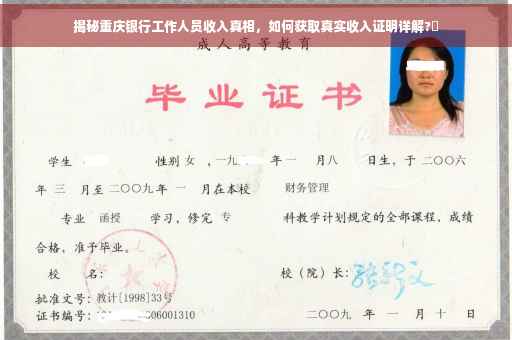 揭秘重庆银行工作人员收入真相，如何获取真实收入证明详解?
成人高等教育
毕业证书
学生 性别 女 ，一九 年一 月八 日生，于二〇〇六
年 三 月至二〇〇九年 一 月在本校 财务管理
专业 函授 学习，修完 专 科教学计划规定的全部课程，成绩
合格，准予毕业。
校 名： 校（院）长：
批准文号：教计[1998]33号
证书编号： 06001310 二〇〇九 年 一 月 十 日